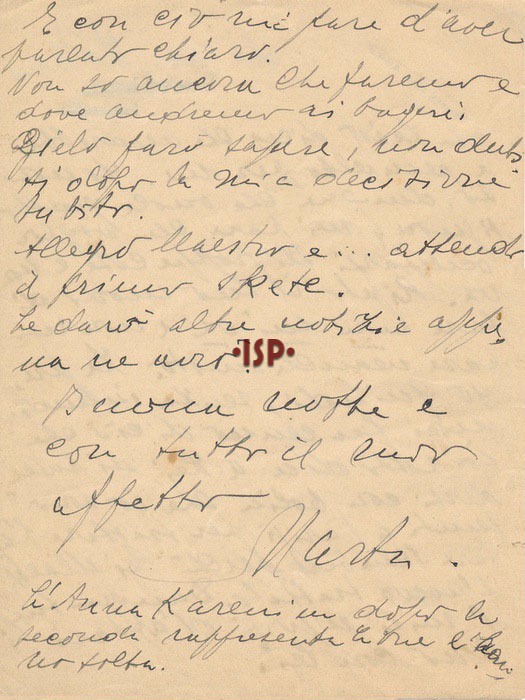 E con ciò mi pare d'aver
parlato chiaro.
Non so ancora che faremo e
dove andremo ai bagni.
Glielo farò sapere, non dubi
ti dopo la mia decisione
subito.
Allegro Maestro e... attendo
il primo skete.
Le darò altre notizie appe,
na ne avrò.
·ISP·
Buona notte e
con tutto il mio
affetto
Marta.
L'Anna Karenina dopo la
seconda rappresentazione l'han
no tolta.